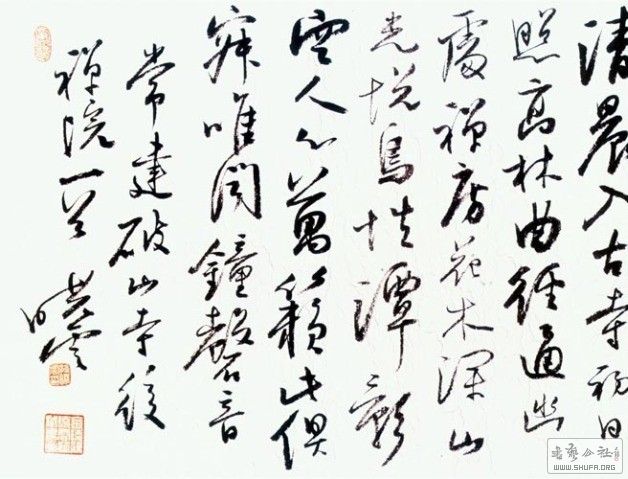 清晨入古寺初日
照高林曲徑通幽
處禪房花木深山
光悦鳥性潭影
空人心萬籟此俱
寂唯聞鐘磬音
常建破山寺後
禪院一首
書藝公社
WWW.SHUFA.ORG